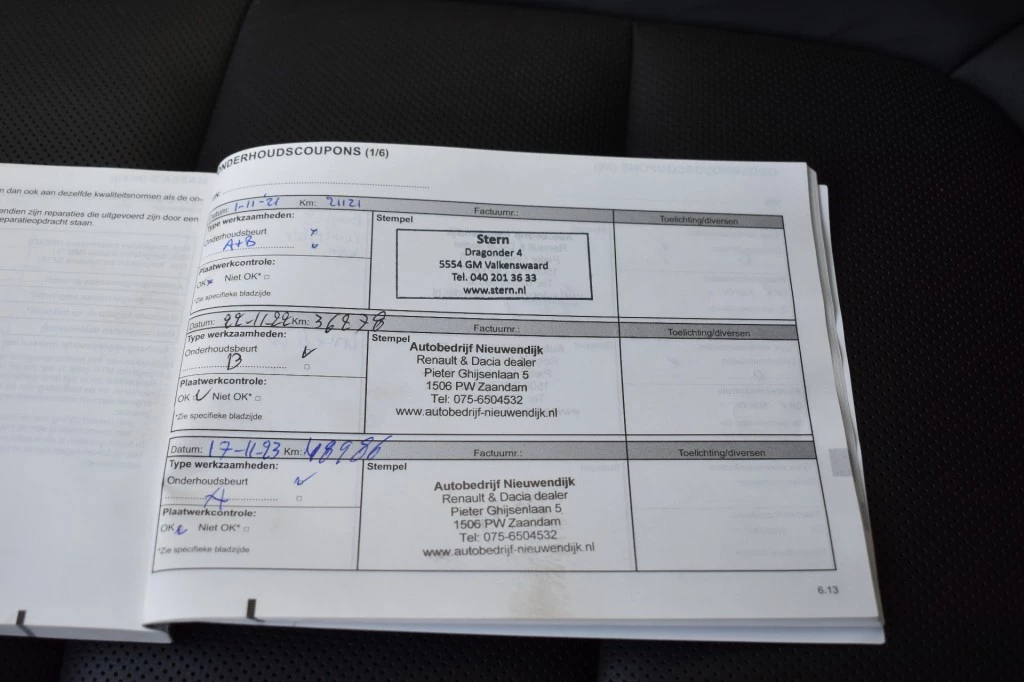 n dan ook aan dezelfde kwaliteitsnormen als de on-
endien zijn reparaties die uitgevoerd zijn door een
eparatieopdracht staan.
ONDERHOUDSCOUPONS (1/6)
Datum: 1-11-21 Km: 21121 Factuurnr.: Toelichting/diversen
Type werkzaamheden:
Stempel
Onderhoudsbeurt
A+B
Plaatwerkcontrole:
OK Niet OK*
*Zie specifieke bladzijde
Stern
Dragonder 4
5554 GM Valkenswaard
Tel. 040 201 36 33
www.stern.nl
Datum: 22-11-22 Km: 36878 Factuurnr.: Toelichting/diversen
Type werkzaamheden:
Stempel
Onderhoudsbeurt
B
Plaatwerkcontrole:
OK Niet OK*
*Zie specifieke bladzijde
Autobedrijf Nieuwendijk
Renault & Dacia dealer
Pieter Ghijsenlaan 5
1506 PW Zaandam
Tel: 075-6504532
www.autobedrijf-nieuwendijk.nl
Datum: 17-11-23 Km: 48986 Factuurnr.: Toelichting/diversen
Type werkzaamheden:
Stempel
Onderhoudsbeurt
A
Plaatwerkcontrole:
OK Niet OK*
*Zie specifieke bladzijde
Autobedrijf Nieuwendijk
Renault & Dacia dealer
Pieter Ghijsenlaan 5
1506 PW Zaandam
Tel: 075-6504532
www.autobedrijf-nieuwendijk.nl
6.13